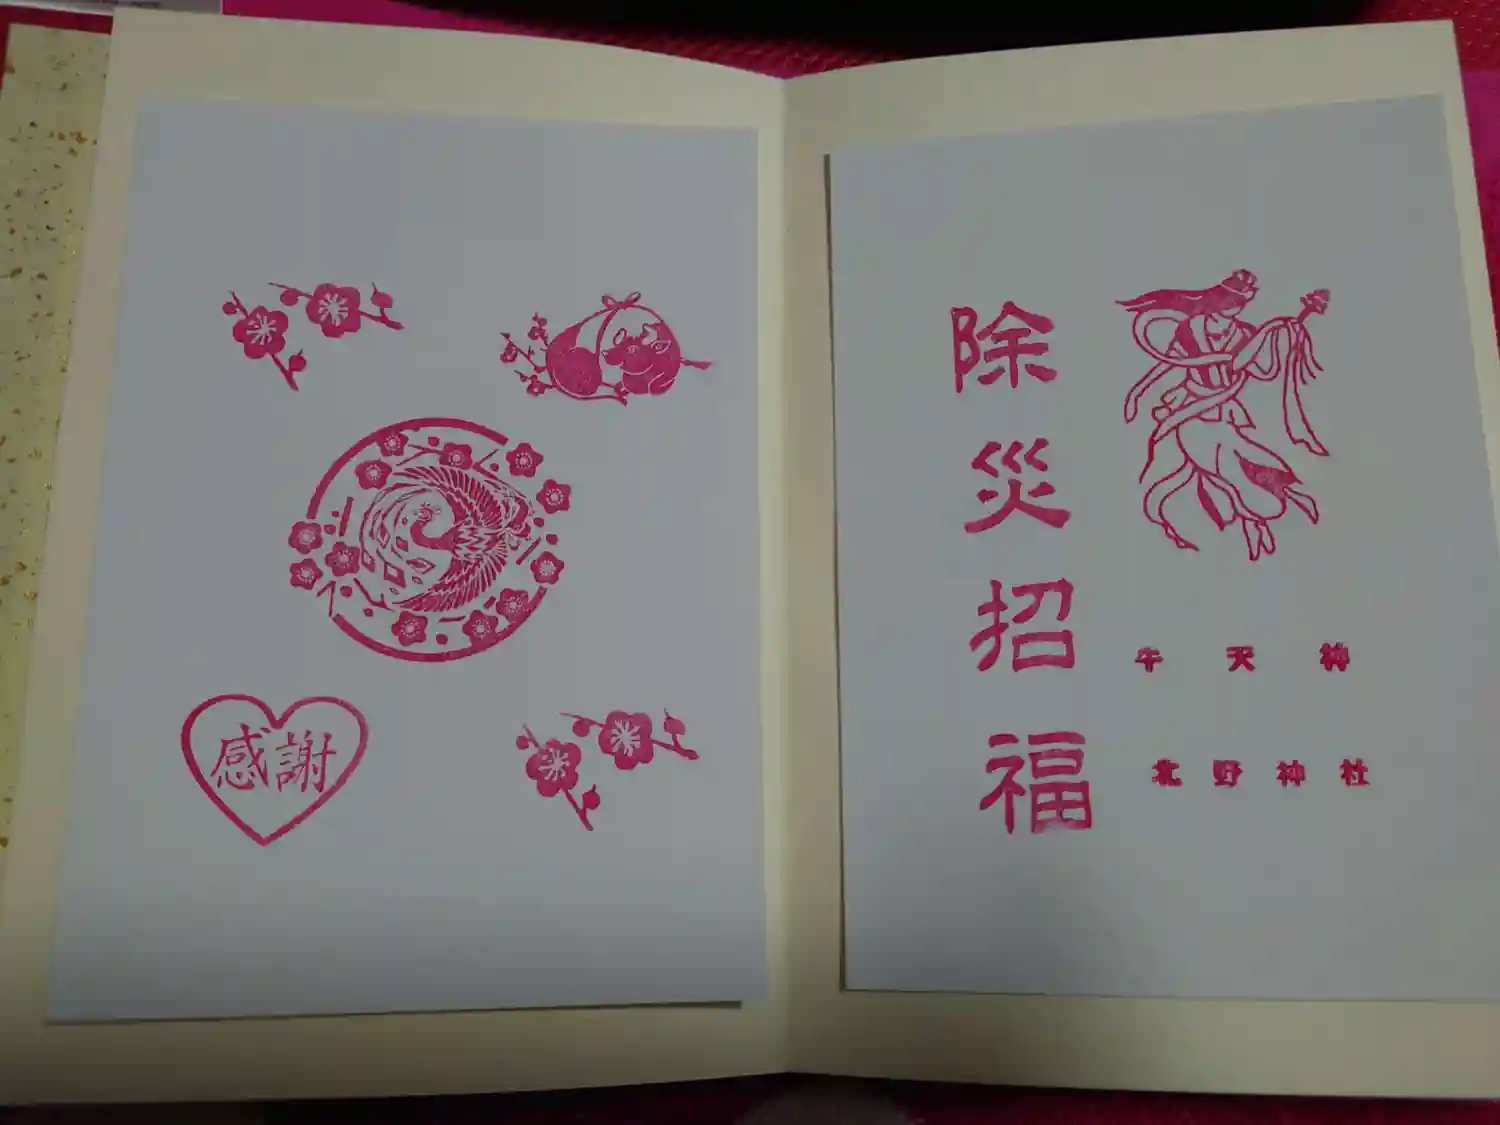 感謝
除災招福
牛天神
北野神社